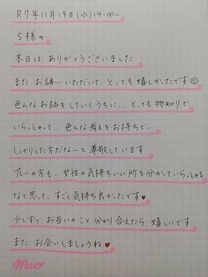 R7年11月19日(水)19:00〜
S様へ
本日は、ありがとうございました
また お誘いいただいて とっても嬉しかったです☺
色んなお話をしていくうちに… とっても物知りで
いらっしゃって… 色んな考えをお持ちで…
しっかりした方だな〜と 尊敬しています
プレーの方も… 女性の気持ちいい所を分かっていらっしゃる
なと思って、すごく気持ち良かったです♥
少しずつ お互いのこと 分かり合えたら 嬉しいです
また お会いしましょうね♥